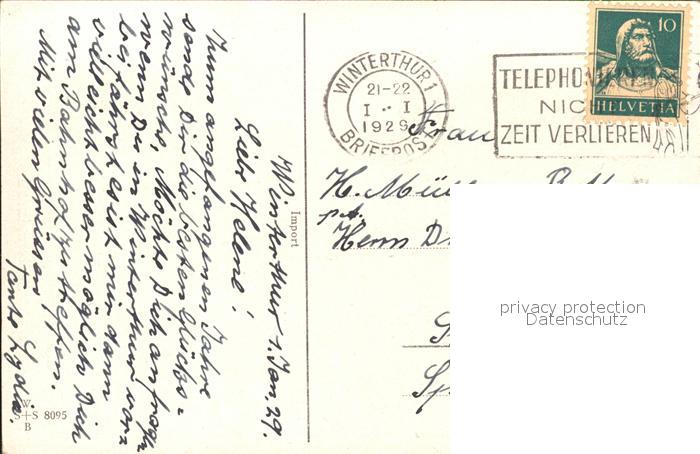 Winterthur 1. Jan. 29.
Liebe Helene!
Zum angefangenen Jahre
sende Dir die besten Glücks=
wünsche. Möchte Dich anfragen
wenn Du in Winterthur vor=
bei fährst es ist mir dann
vielleicht besser möglich Dich
am Bahnhof zu treffen.
Mit vielen Grüssen
Tante Lydia.
Import
W
S+S 8095
B
WINTERTHUR 1
21-22
I · I
1929
BRIEFPOST
TELEPHONIEREN
ZEIT VERLIEREN
10
HELVETIA
Frau
H.
p.A.
Herrn
privacy protection
Datenschutz